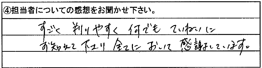 ④担当者についての感想をお聞かせ下さい。
すごく判りやすく何でもていねいに
お知らせ下さり全てにおいて感謝しています。